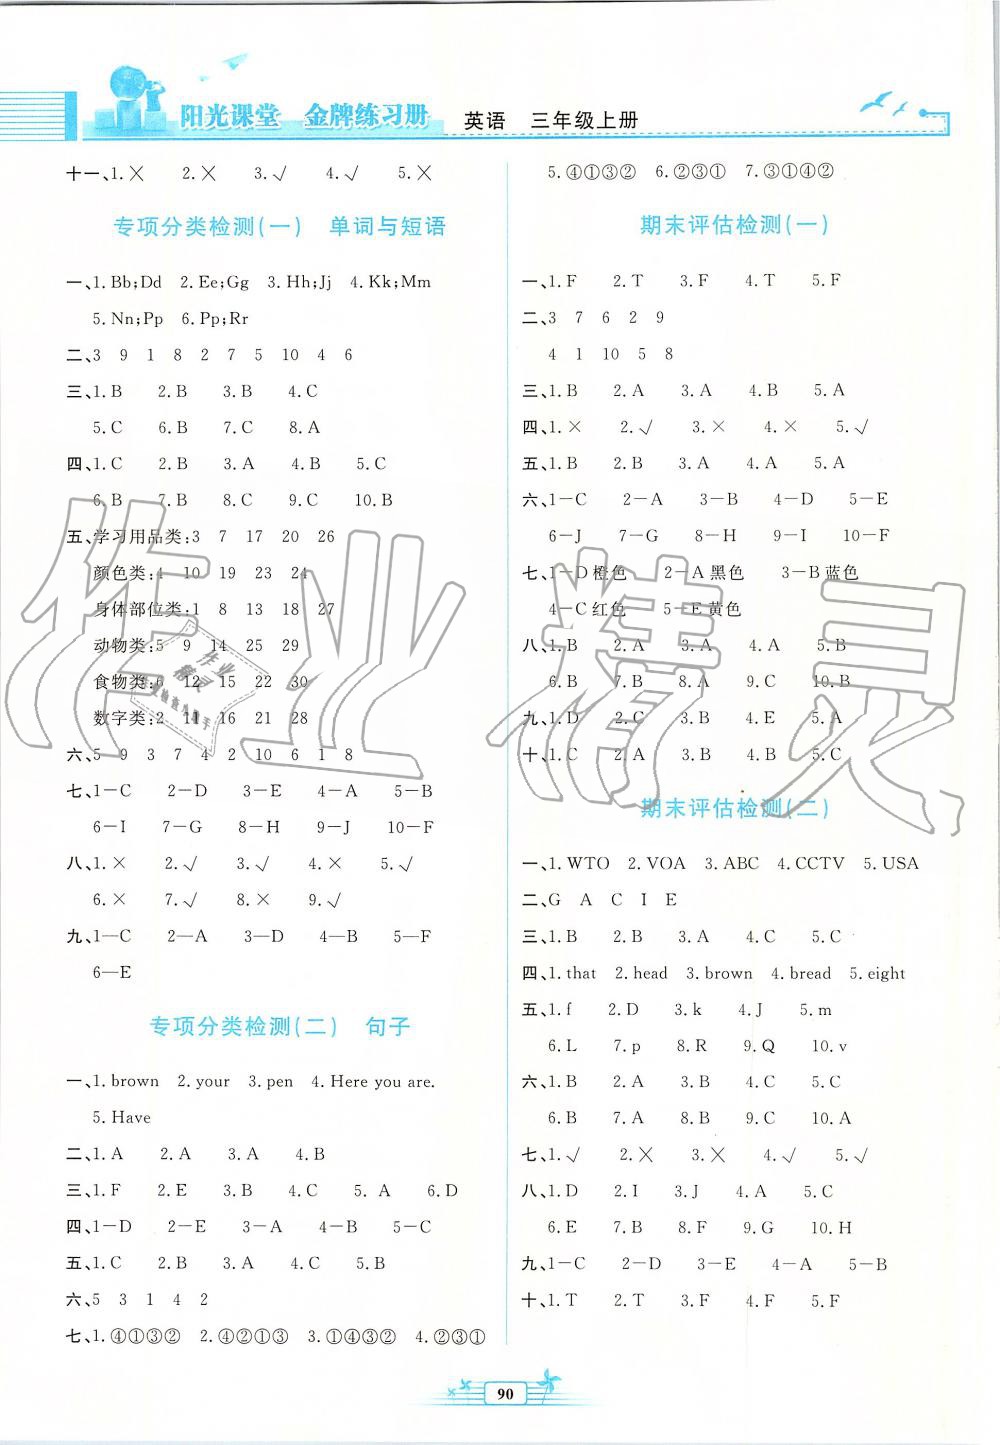 阳光课堂 金牌练习册 英语 三年级上册
十一、1.╳ 2.╳ 3.√ 4.√ 5.╳
专项分类检测(一) 单词与短语
一、1.Bb;Dd 2.Ee;Gg 3.Hh;Jj 4.Kk;Mm
5.Nn;Pp 6.Pp;Rr
二、3 9 1 8 2 7 5 10 4 6
三、1.B 2.B 3.B 4.C
5.C 6.B 7.C 8.A
四、1.C 2.B 3.A 4.B 5.C
6.B 7.B 8.C 9.C 10.B
五、学习用品类:3 7 17 20 26
颜色类:4 10 19 23 24
身体部位类:1 8 13 18 27
动物类:5 9 14 25 29
食物类:6 12 15 22 30
数字类:2 11 16 21 28
六、5 9 3 7 4 2 10 6 1 8
七、1—C 2—D 3—E 4—A 5—B
6—I 7—G 8—H 9—J 10—F
八、1.× 2.√ 3.√ 4.× 5.√
6.× 7.√ 8.× 9.√
九、1—C 2—A 3—D 4—B 5—F
6—E
专项分类检测(二) 句子
一、1.brown 2.your 3.pen 4.Here you are.
5.Have
二、1.A 2.A 3.A 4.B
三、1.F 2.E 3.B 4.C 5.A 6.D
四、1—D 2—E 3—A 4—B 5—C
五、1.C 2.B 3.A 4.C 5.B
六、5 3 1 4 2
七、1.④①③② 2.④②①③ 3.①④③② 4.②③①
5.④①③② 6.②③① 7.③①④②
期末评估检测(一)
一、1.F 2.T 3.F 4.T 5.F
二、3 7 6 2 9
4 1 10 5 8
三、1.B 2.A 3.A 4.B 5.A
四、1.× 2.√ 3.× 4.× 5.√
五、1.B 2.B 3.A 4.A 5.A
六、1—C 2—A 3—B 4—D 5—E
6—J 7—G 8—H 9—I 10—F
七、1—D橙色 2—A黑色 3—B蓝色
4—C红色 5—E黄色
八、1.B 2.A 3.A 4.A 5.B
6.B 7.B 8.A 9.C 10.B
九、1.D 2.C 3.B 4.E 5.A
十、1.C 2.A 3.B 4.B 5.C
期末评估检测(二)
一、1.WTO 2.VOA 3.ABC 4.CCTV 5.USA
二、G A C I E
三、1.B 2.B 3.A 4.C 5.C
四、1.that 2.head 3.brown 4.bread 5.eight
五、1.f 2.D 3.k 4.J 5.m
6.L 7.p 8.R 9.Q 10.v
六、1.B 2.A 3.A 4.B 5.C
6.B 7.A 8.B 9.C 10.A
七、1.√ 2.╳ 3.╳ 4.√ 5.√
八、1.D 2.I 3.J 4.A 5.C
6.E 7.B 8.F 9.G 10.H
九、1—C 2—D 3—E 4—A 5—B
十、1.T 2.T 3.F 4.F 5.F
90
作业精灵
作业
精灵